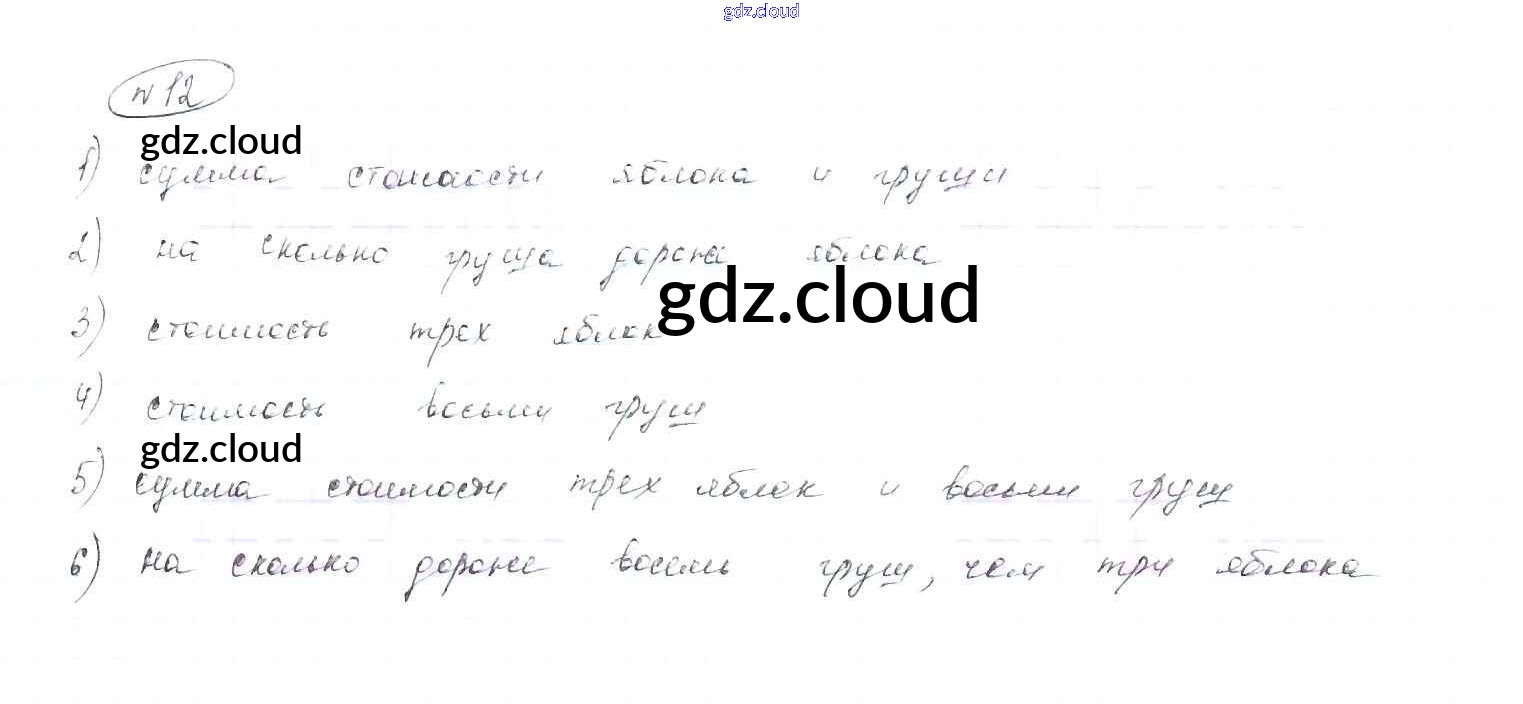 gdz.cloud
№12
gdz.cloud
1) сумма стоимости яблока и груши
2) на сколько груша дороже яблока
gdz.cloud
3) стоимость трех яблок
4) стоимость восьми груш
gdz.cloud
5) сумма стоимости трех яблок и восьми груш
6) на сколько дороже восемь груш, чем три яблока